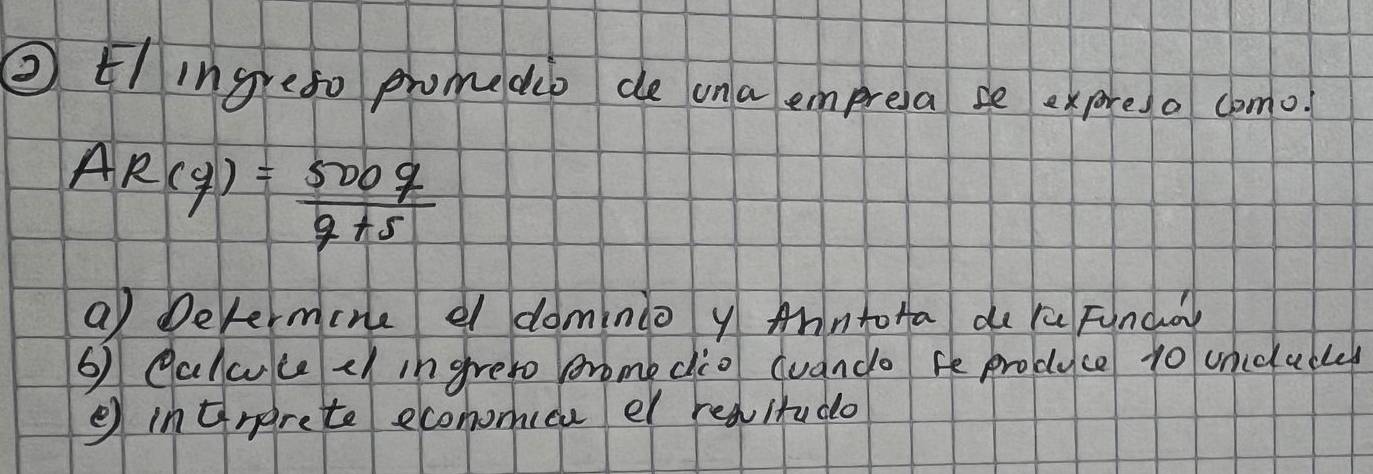 ② El ingreso promedio de una empresa se expresa como:
AR(q) = 500q
q + 5
a) Determine el dominio y Asíntota de la Función
b) Calcule el ingreso promedio cuando se produce 10 unidades
c) interprete economica el resultado